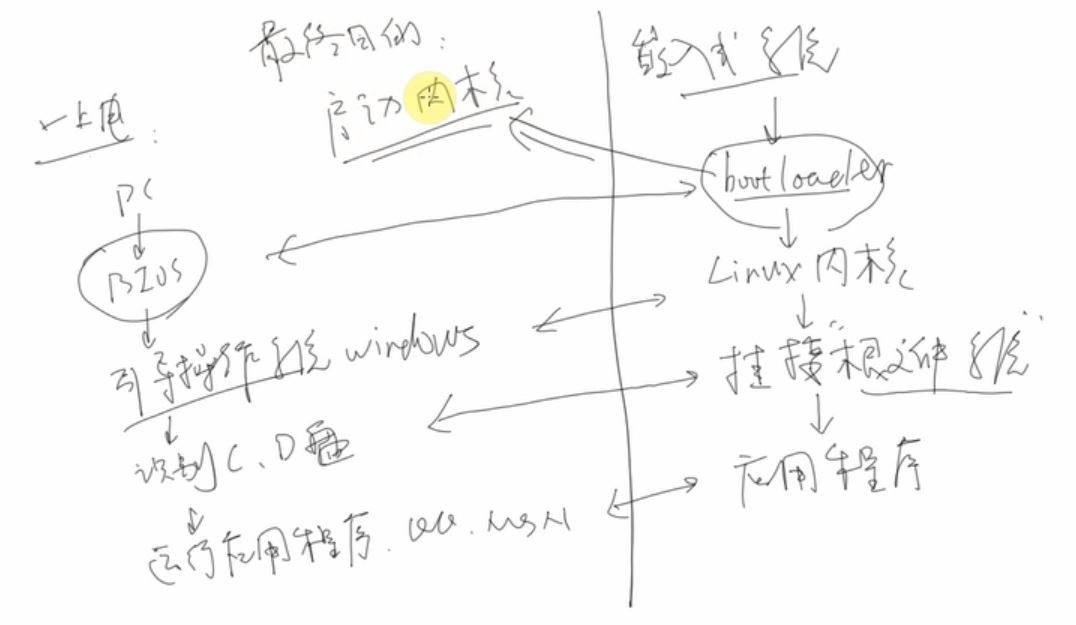 最终目的:
启动内核
一上电:
PC
BIOS
引导操作系统 windows
识别C、D盘
运行应用程序. QQ. MSN
嵌入式系统
bootloader
Linux内核
挂接"根文件系统"
应用程序